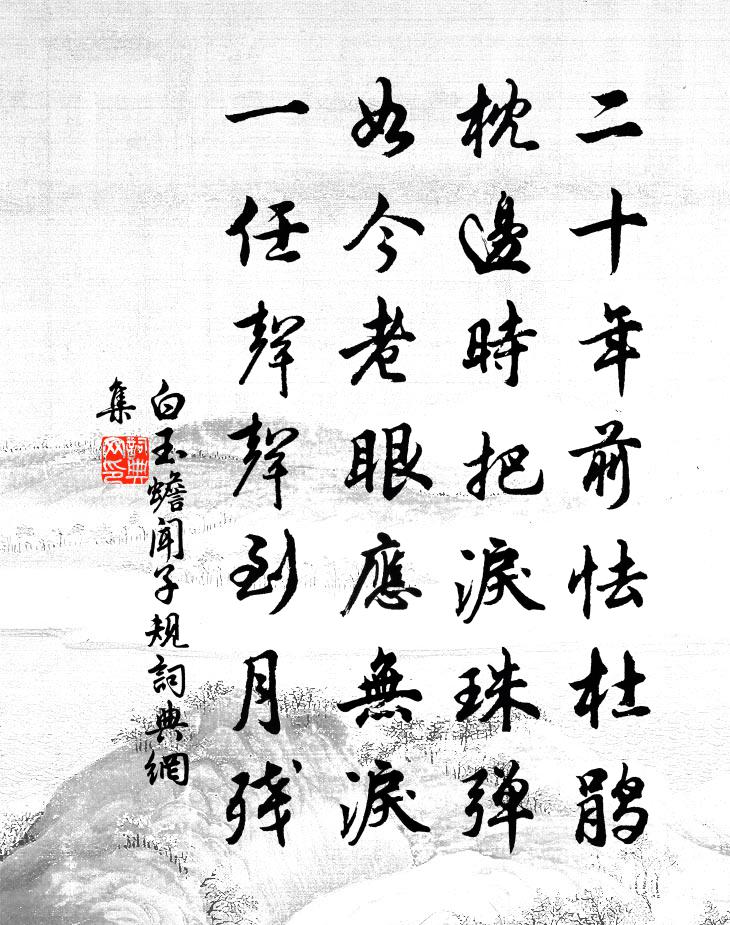 二十年前怯杜鹃
枕邊時把淚珠弹
如今老眼應無淚
一任聲聲到月残
白玉蟾聞子規詞典網
集
詞典
网印